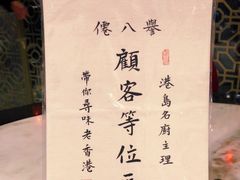 譽八僊
港島名廚主理
顧客等位
帶你尋味老香港